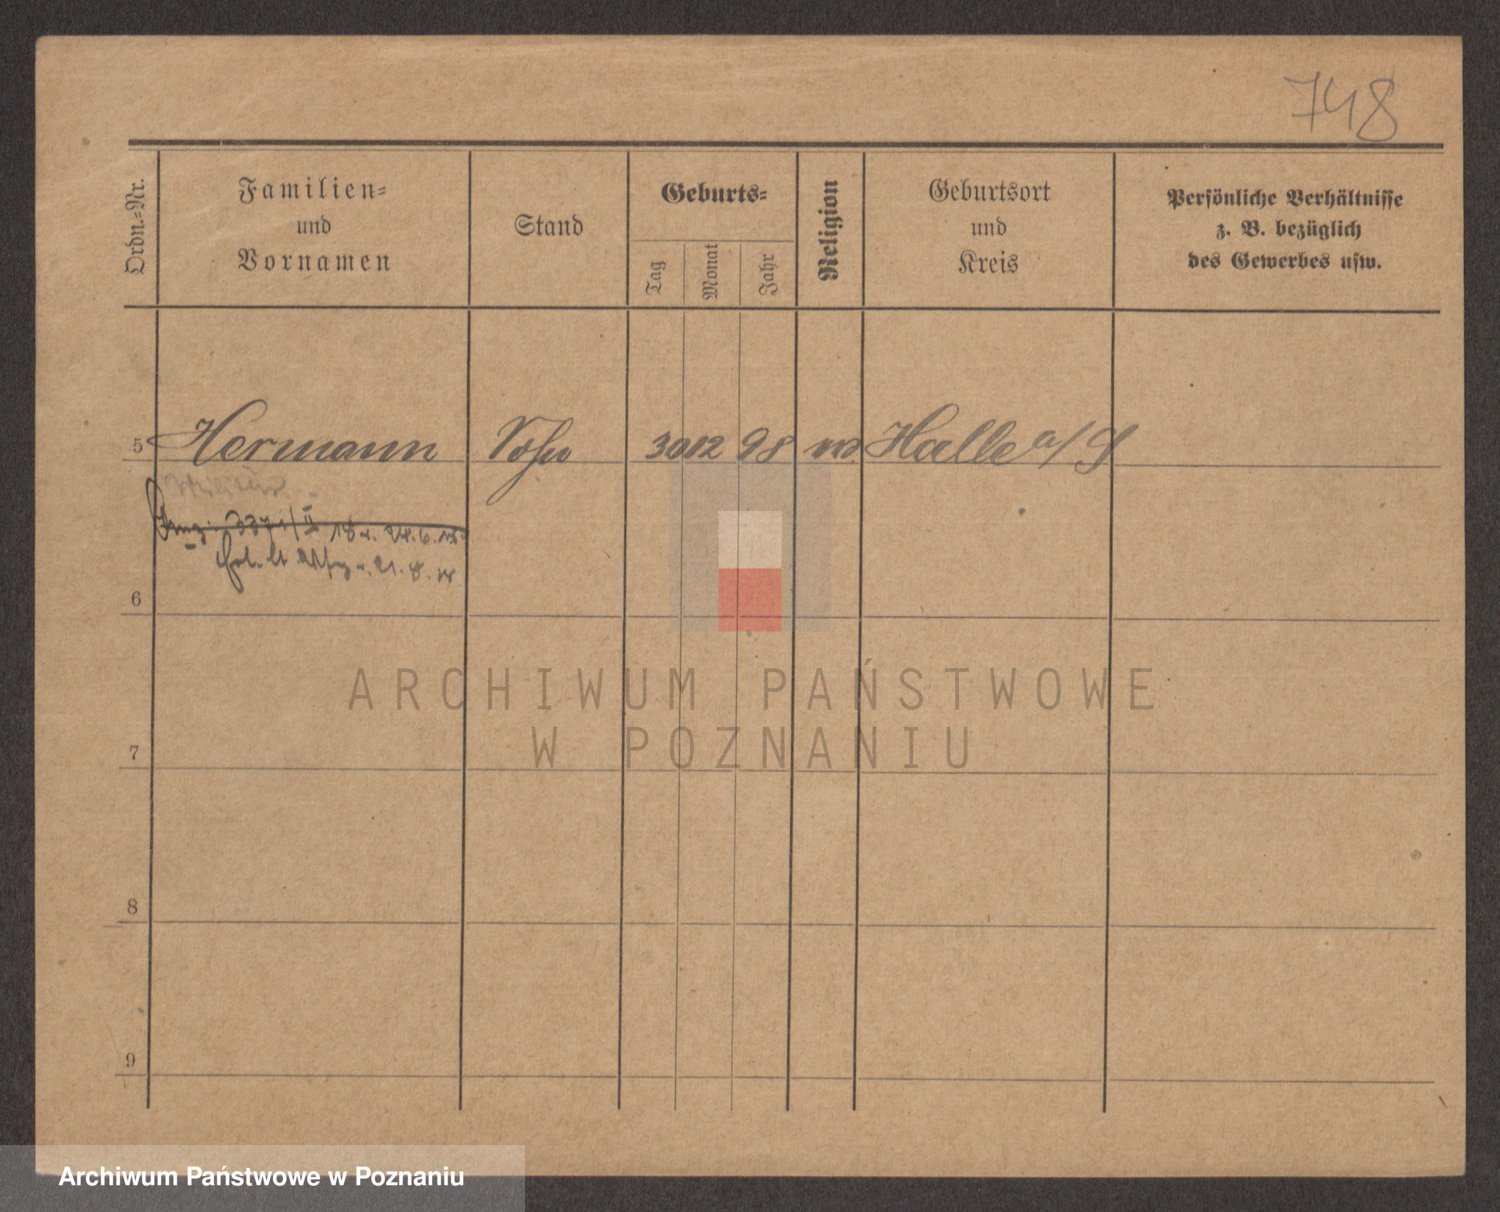 748
Ordn.-Nr.
Familien-
und
Vornamen
Stand
Geburts-
Tag
Monat
Jahr
Religion
Geburtsort
und
Kreis
Persönliche Verhältnisse
z. B. bezüglich
des Gewerbes usw.
5 Hermann Sohn 30 12 98 Halle a/S
24.6.18
21.8.18
6
7
8
9
ARCHIWUM PAŃSTWOWE
W POZNANIU
Archiwum Państwowe w Poznaniu